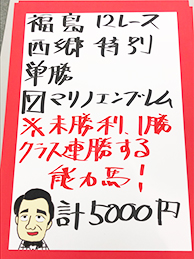 福島12レース
西郷特別
単勝
④マリノエンブレム
※未勝利、1勝
クラス連勝する
能力馬!
計5000円